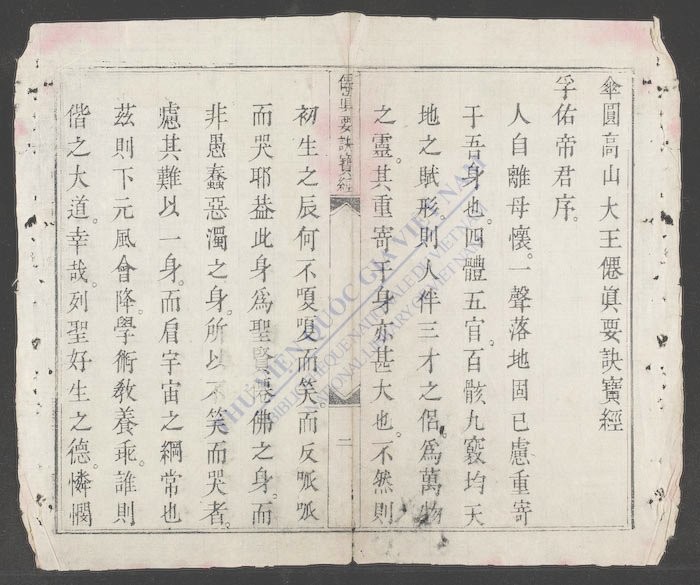 傘圓高山大王僊眞要訣寶經
孚佑帝君序。
人自離母懷。一聲落地固已慮重寄
于吾身也。四體五官。百骸九竅均天
地之賦形。則人伴三才之侶。爲萬物
之靈。其重寄于身亦甚大也。不然則
僊眞要訣寶經
二
初生之辰何不嗄嗄而笑。而反呱呱
而哭耶。葢此身爲聖賢僊佛之身。而
非愚蠢惡濁之身。所以不笑而哭者。
慮其難以一身。而肩宇宙之綱常也
茲則下元風會降。學術敎養乖。誰則
偕之大道。幸哉。列聖好生之德。憐憫
THƯ VIỆN QUỐC GIA VIỆT NAM
BIBLIOTHEQUE NATIONALE DU VIETNAM
NATIONAL LIBRARY OF VIETNAM